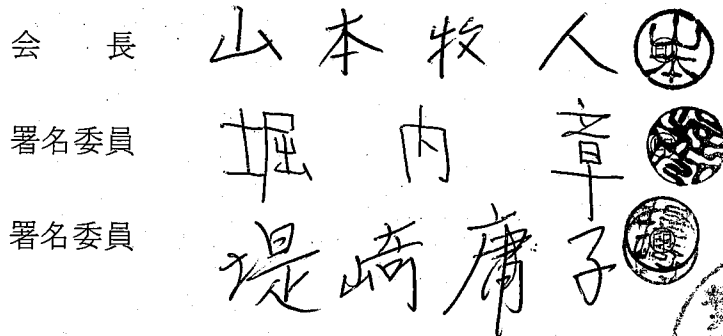 会長 山本牧人
署名委員 堀内章
署名委員 堤﨑庸子